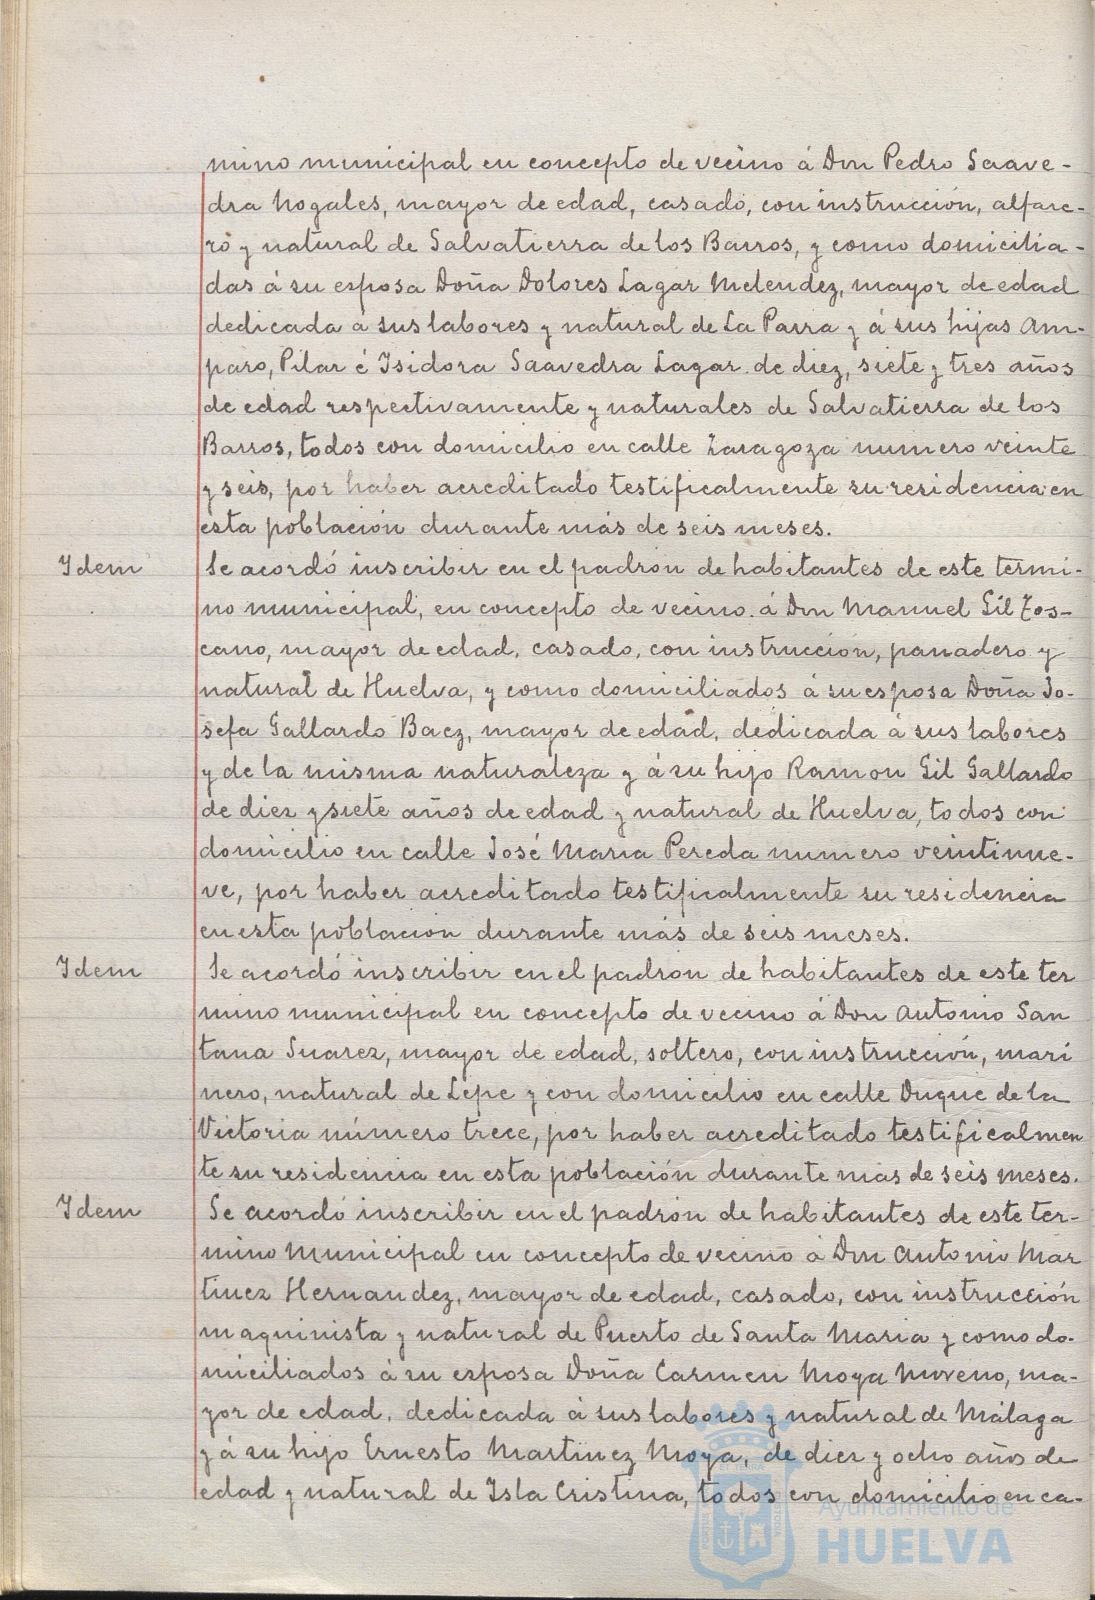 mino municipal en concepto de vecino á Don Pedro Saave-
dra Nogales, mayor de edad, casado, con instrucción, alfare-
ro y natural de Salvatierra de los Barros, y como domicilia-
das á su esposa Doña Dolores Lagar Melendez, mayor de edad
dedicada á sus labores y natural de La Parra y á sus hijas Am-
paro, Pilar é Isidora Saavedra Lagar de diez, siete y tres años
de edad respectivamente y naturales de Salvatierra de los
Barros, todos con domicilio en calle Zaragoza numero veinte
y seis, por haber acreditado testificalmente su residencia en
esta población durante más de seis meses.
Idem
Se acordó inscribir en el padrón de habitantes de este termi-
no municipal, en concepto de vecino á Don Manuel Gil Tos-
cano, mayor de edad, casado, con instrucción, panadero y
natural de Huelva, y como domiciliados á su esposa Doña Jo-
sefa Gallardo Baez, mayor de edad, dedicada á sus labores
y de la misma naturaleza y á su hijo Ramon Gil Gallardo
de diez y siete años de edad y natural de Huelva, todos con
domicilio en calle José Maria Pereda numero veintinue-
ve, por haber acreditado testificalmente su residencia
en esta población durante más de seis meses.
Idem
Se acordó inscribir en el padrón de habitantes de este ter
mino municipal en concepto de vecino á Don Antonio San
tana Suarez, mayor de edad, soltero, con instrucción, mari
nero, natural de Lepe y con domicilio en calle Duque de la
Victoria número trece, por haber acreditado testificalmen
te su residencia en esta población durante mas de seis meses.
Idem
Se acordó inscribir en el padrón de habitantes de este ter-
mino municipal en concepto de vecino á Don Antonio Mar
tinez Hernandez, mayor de edad, casado, con instrucción
maquinista y natural de Puerto de Santa Maria y como do-
miciliados á su esposa Doña Carmen Moya Moreno, ma-
yor de edad, dedicada á sus labores y natural de Málaga
y á su hijo Ernesto Martinez Moya, de diez y ocho años de
edad y natural de Isla Cristina, todos con domicilio en ca-
Ayuntamiento de
HUELVA